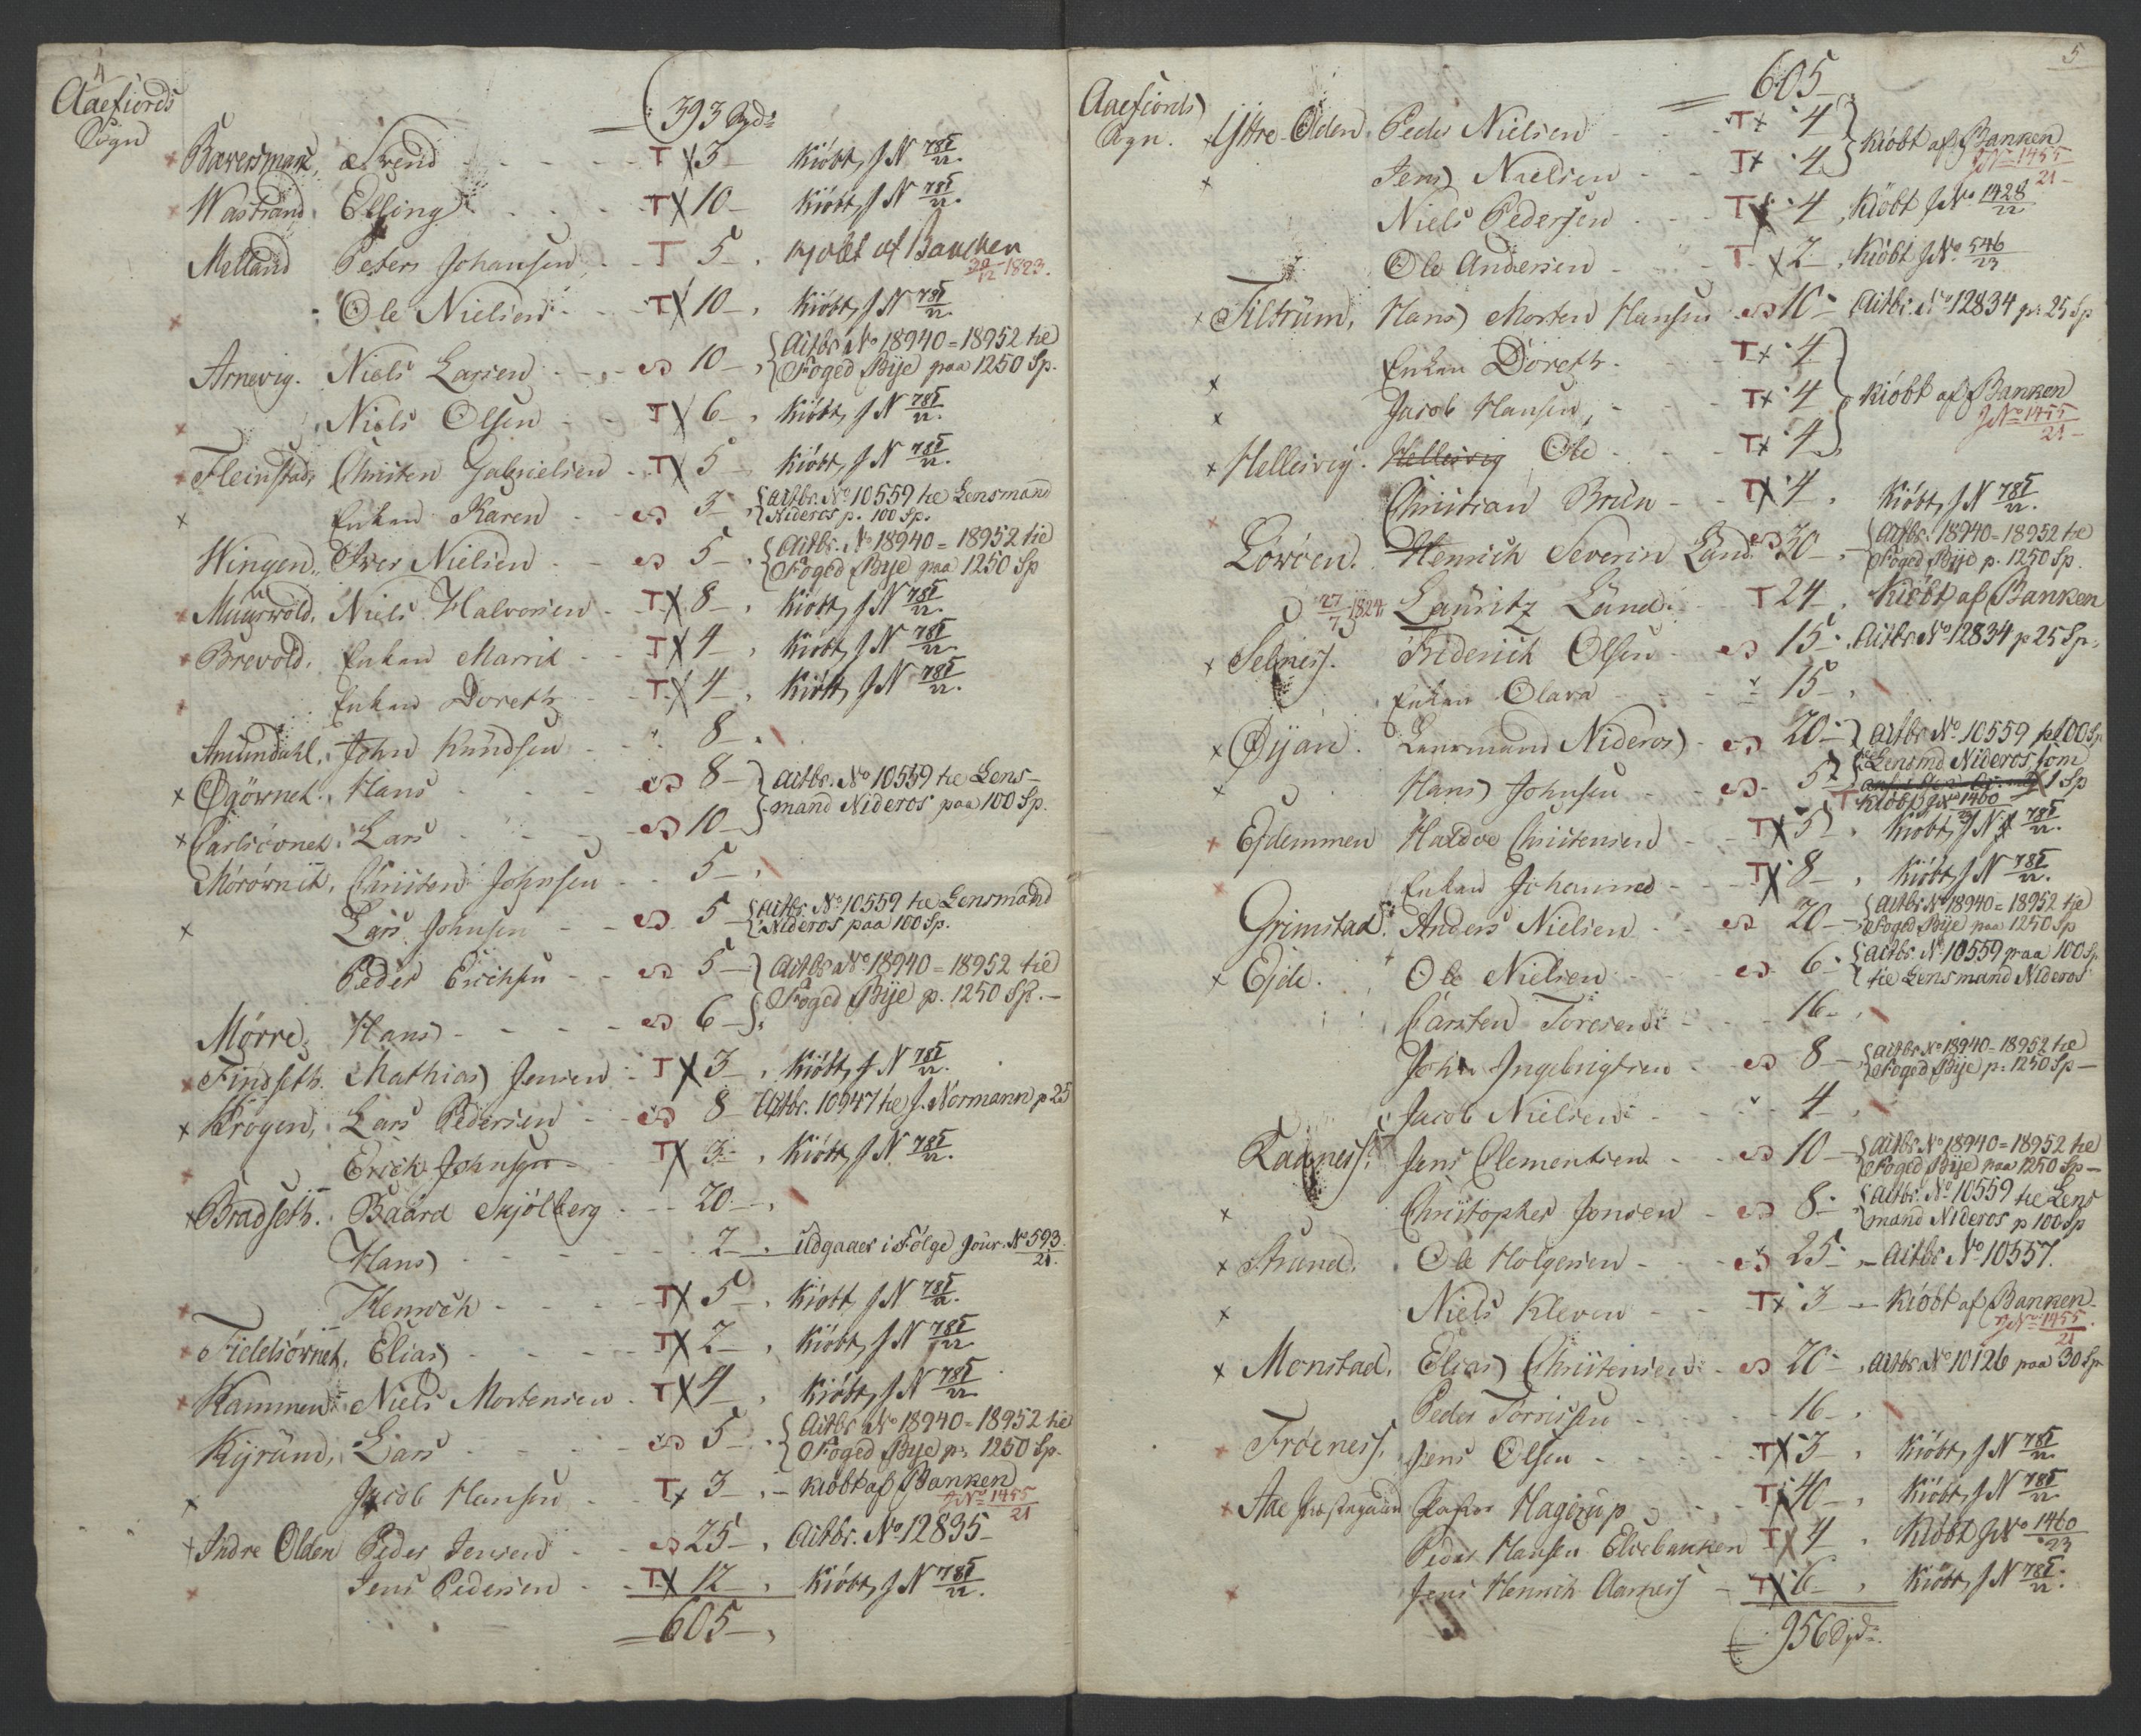 4
Aaefiords
Sogn
393 Spd:
Bæversmark, Svend - T X 3 - Kiöbt, J N 781/22.
Wastrand. Elling - T X 10 - Kiöbt, J N 781/22.
Melland Peter Johansen - T 5 - Kjöbt af Banken
30/12 1823.
Ole Nielsen - T X 10 - Kiöbt, J N 781/22.
Arnevig. Niels Larsen - 10 - Actbr. No 18940 = 18952 til
Foged Bye paa 1250 Sp.
Niels Olsen - T X 6 - Kiöbt, J N 781/22.
Fleinstad, Christen Gabrielsen - T X 5 - Kiöbt, J N 781/22.
Enken Karen - 3 - Actbr. No 10559 til Lensmand
Nideros p. 100 Sp.
Wingen, Iver Nielsen - 5 - Actbr. No 18940 = 18952 til
Foged Bye paa 1250 Sp
Muurvold, Niels Halvorsen - T X 8 - Kiöbt, J N 781/22.
Brevold, Enken Marrit - T X 4 - Kiöbt, J N 781/22.
Enken Doreth - T X 4 - Kiöbt, J N 781/22.
Amundahl, John Knudsen - 8 -
x Hans - 8 - Actbr. No 10559 til Lens-
mand Nideros paa 100 Sp.
x Lars - 10 -
Christen Johnsen - 5 -
x Lars Johnsen - 5 - Actbr. No 10559 til Lensmand
Nideros paa 100 Sp.
Peder Erichsen - 5 - Actbr No 18940 = 18952 til
Foged Bye p. 1250 Sp. -
Mørre, Hans - 6 -
Findseth. Mathias Jensen - T X 3 - Kiöbt, J N 781/22.
x Krogen, Lars Pedersen - 8 - Actbr. 10947 til J. Normann p 25
Erich Johnsen - T X 3 - Kiöbt, J N 781/22.
x Bradseth. Baard Skjölberg - 20 -
Hans - 2 - Udgaaer i Følge Jour. No 593/21.
Henrich - T X 5 - Kiöbt, J N 781/22.
Fieldsövnet, Elias - T X 2 - Kiöbt, J N 781/22.
Kammen Niels Mortensen - T X 4 - Kiöbt, J N 781/22.
Kijründ, Lars - 5 - Actbr No 18940 = 18952 til
Foged Bye p. 1250 Sp.
x Jacob Hansen - T x 3 - Kiöbt af Banken
J No 1455/21
x Indre Olden Peder Jensen - 25 - Actbr. No 12835 -
Jens Pedersen - T X 12 - Kiöbt, J N 781/22.
605 -
5
Aaefiords
Sogn.
605
x Yttre Olden Peder Nielsen - T x 4 Kiöbt af Banken
J No 1455/21 -
x Jens Nielsen - T x 4
Niels Pedersen - T x 4 Kiöbt J No 1428/22
Ole Andersen - T x 2 - Kiöbt J No 546/23
x Tiltrum, Hans Morten Hansen 10 - Actbr. No 12834 p. 25 Sp
x Enken Döreth - T x 4
x Jacob Hansen - T x 4 Kiöbt af Banken
J No 1455/21 -
x Hellesvig. Hellesvig Ole - T x 4
Christian Brun - T X 4 - Kiöbt, J N 781/22.
Lövöen. Henrich Severin Lund 30 - Actbr. 18940 = 18952 til
Foged Bye p. 1250 Sp.
27/7 1824 Lauritz Lund: T 24 - Kiöbt af Banken
x Selness. Friderich Olsen - 15 - Actbr No 12834 p 25 Sp.
Enken Olava - 15 -
x Øyan. Lensmand Nideros - 20 - Actbr No 10559 p 100 Sp
til Lensmd Nideros som
x Hans Johnsen - 5 - 1 Sp
T Kiöbt J No 1460/23
Ejdemmen Haldoe Christensen - T X 5 - Kiöbt, J N 781/22.
Enken Johanna - T X 8 - Kiöbt, J N 781/22.
Grimstad. Anders Nielsen - 20 - Actbr No 18940 = 18952 til
Foged Bye paa 1250 Sp
x Ejde. Ole Nielsen - 6 - Actbr. No 10559 paa 100 Sp.
til Lensmand Nideros
Carsten Toresen - 16 -
John Ingebrigtsen - 8 - Actbr No 18940 = 18952 til
Foged Bye p. 1250 Sp -
Jacob Nielsen - 4 -
Raaness. Jens Clementsen - 10 - Actbr. No 18940 = 18952 til
Foged Bye paa 1250 Sp -
x Christopher Jonsen - 8 - Actbr. No 10559 til Lens
mand Nideros p 100 Sp
x Strand. Ole Holgersen - 25 - Actbr No 10557.
x Niels Kleven - T x 3 - Kiöbt af Banken
J No 1455/21.
x Monstad, Elias Christensen - 20 - Actbr No 10126 paa 30 Sp
Peder Torrissen - 16 -
Fröeness, Jens Olsen - T X 3 - Kiöbt, J N 781/22
Aae Præstegaard Pastor Hagerup - T X 40 - Kiöbt, J N 781/22
Peder Hansen Elvebakken T X 4 - Kiöbt J No 1460/23
Jens Henrich Aarness - T X 6 - Kiöbt, J N 781/22.
956 Spd: